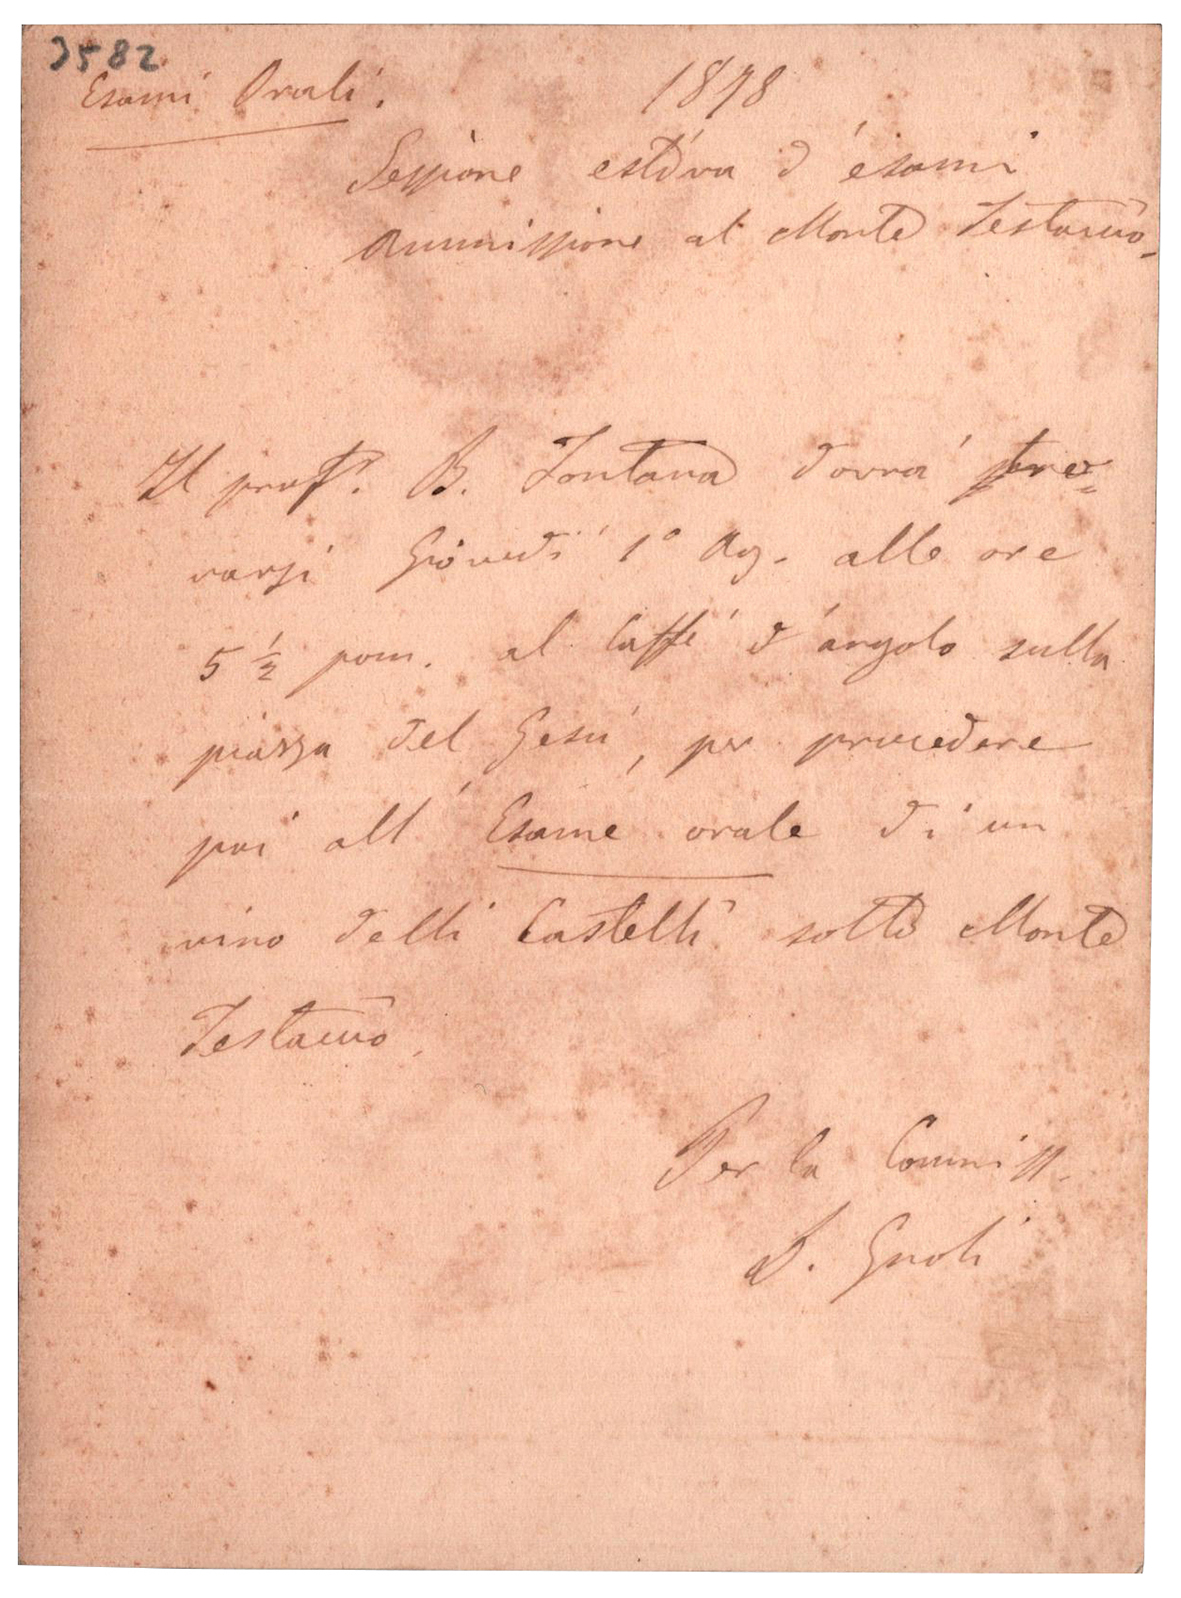 3582
Esami Orali. 1878
Sessione estiva d'esami
Ammissione al Monte Testaccio.
Il prof. B. Fontana dovrà tro=
varsi Giovedì 1° Ag. alle ore
5 1/2 pom. al Caffè d'angolo sulla
piazza del Gesù, per procedere
poi all'Esame orale di un
vino delli Castelli sotto Monte
Testaccio.
Per la Commiss.
D. Gnoli